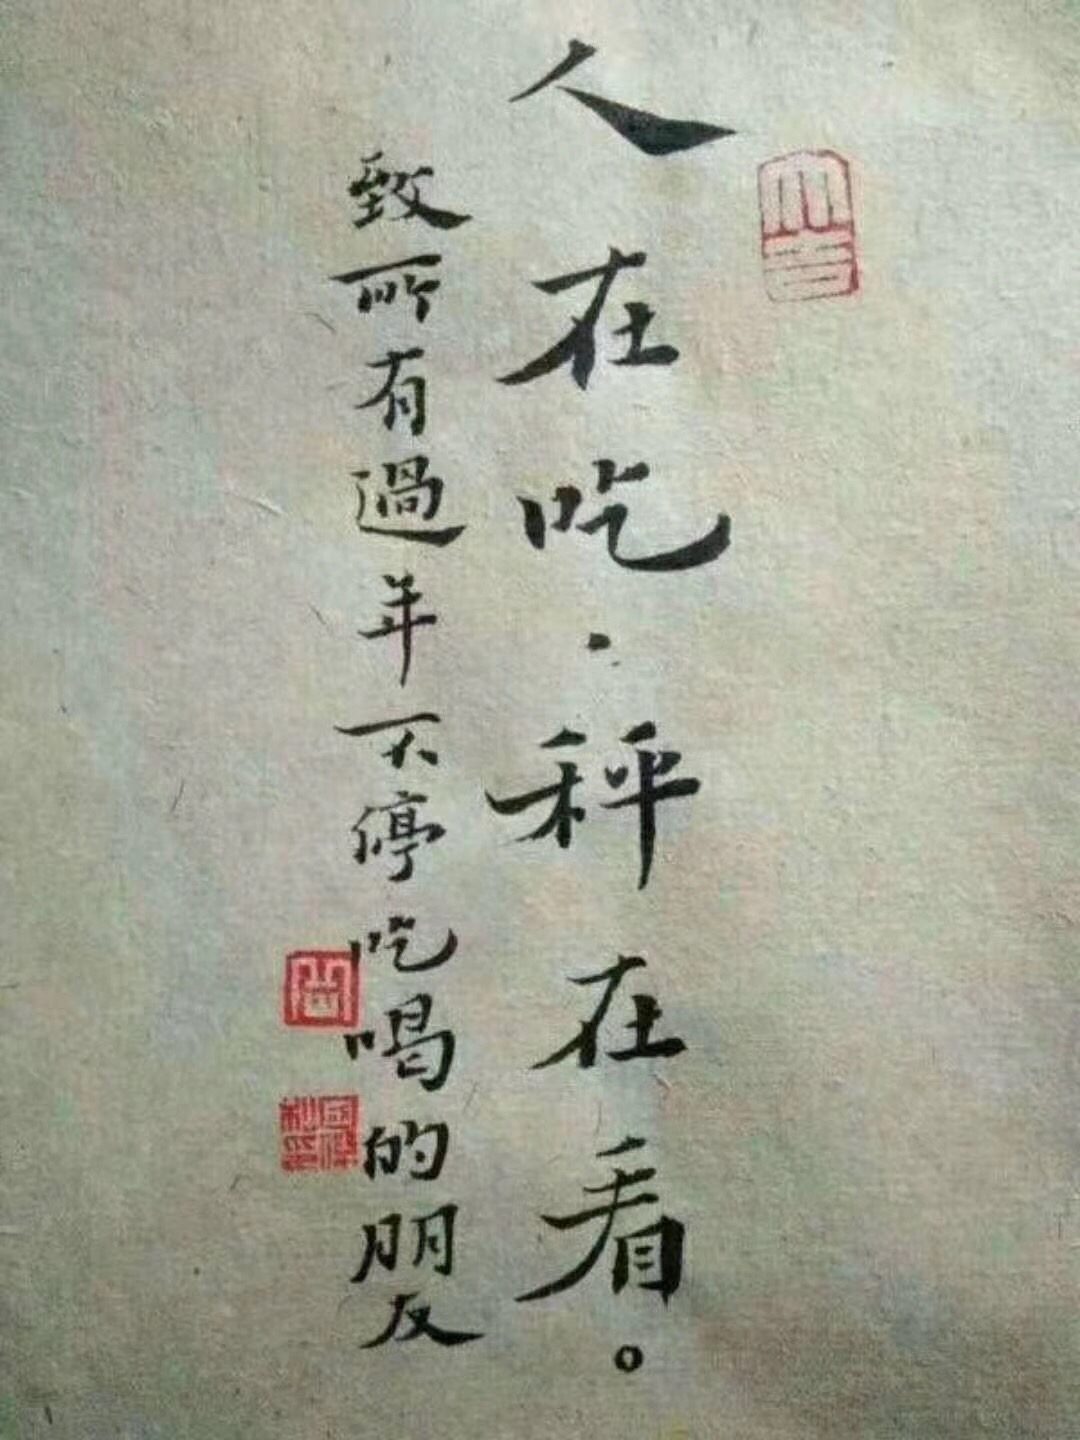 人在吃．秤在看。
致所有過年不停吃喝的朋友
大吉